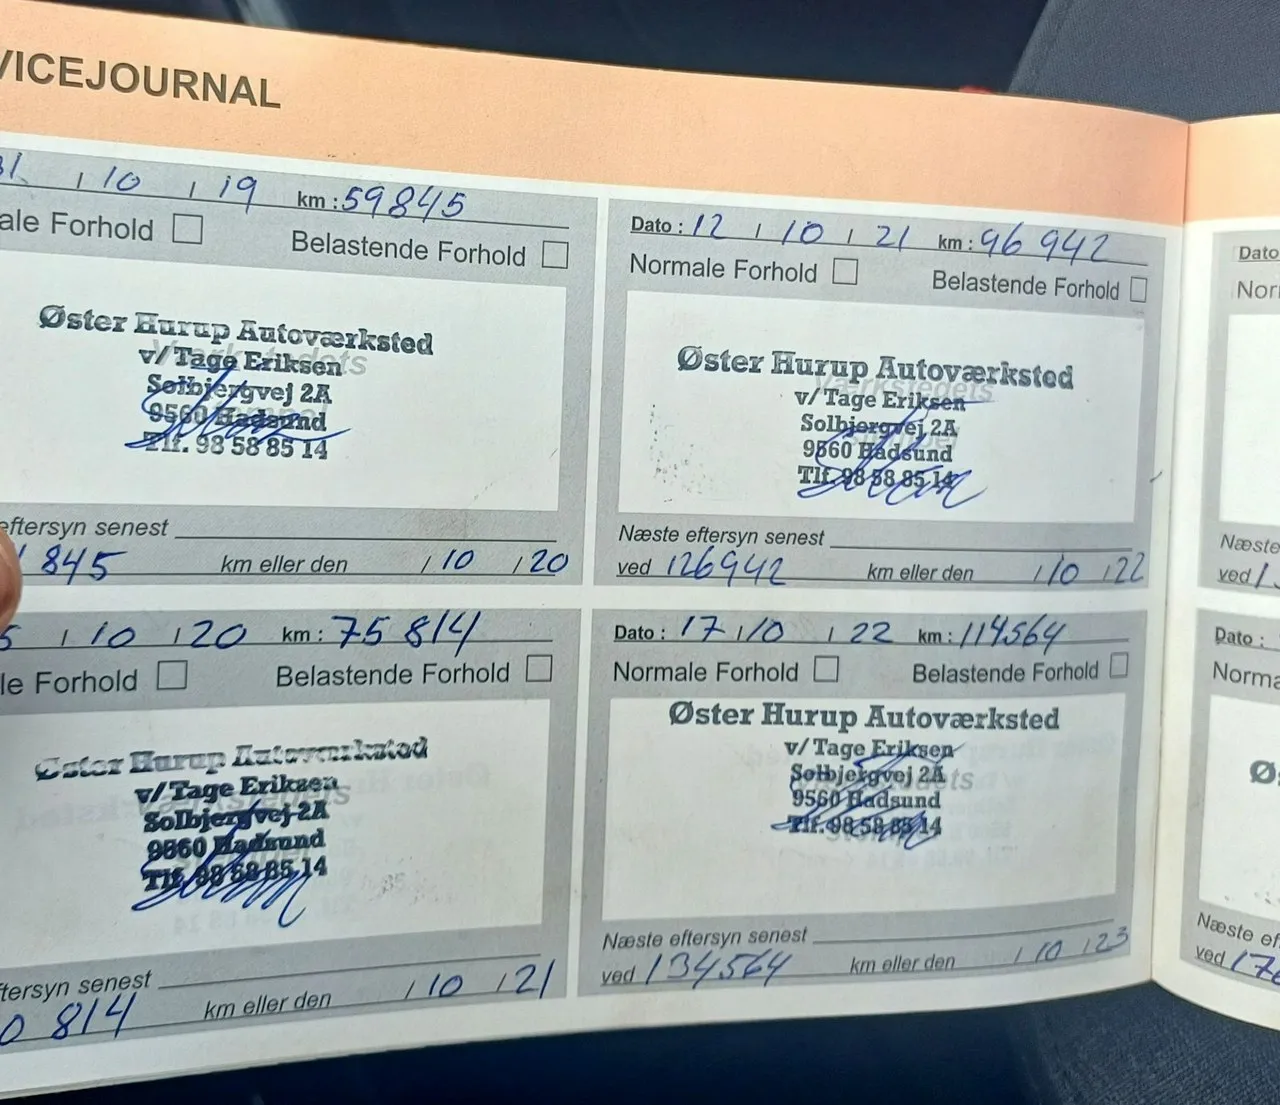 VICEJOURNAL
31 / 10 / 19 km : 59845
ale Forhold Belastende Forhold
Øster Hurup Autoværksted
v/ Tage Eriksen
Solbjergvej 2A
9560 Hadsund
Tlf. 98 58 85 14
eftersyn senest
845 km eller den / 10 / 20
5 / 10 / 20 km : 75 814
le Forhold Belastende Forhold
Øster Hurup Autoværksted
v/ Tage Eriksen
Solbjergvej 2A
9560 Hadsund
Tlf. 98 58 85 14
ftersyn senest
0 814 km eller den / 10 / 21
Dato : 12 / 10 / 21 km : 96 942
Normale Forhold Belastende Forhold
Øster Hurup Autoværksted
v/ Tage Eriksen
Solbjergvej 2A
9560 Hadsund
Tlf. 98 58 85 14
Næste eftersyn senest
ved 126942 km eller den / 10 / 22
Dato : 17 / 10 / 22 km : 114564
Normale Forhold Belastende Forhold
Øster Hurup Autoværksted
v/ Tage Eriksen
Solbjergvej 2A
9560 Hadsund
Tlf. 98 58 85 14
Næste eftersyn senest
ved 134564 km eller den / 10 / 23
Dato
Nor
Næste
ved 1
Dato :
Norma
Øs
Næste ef
ved 17